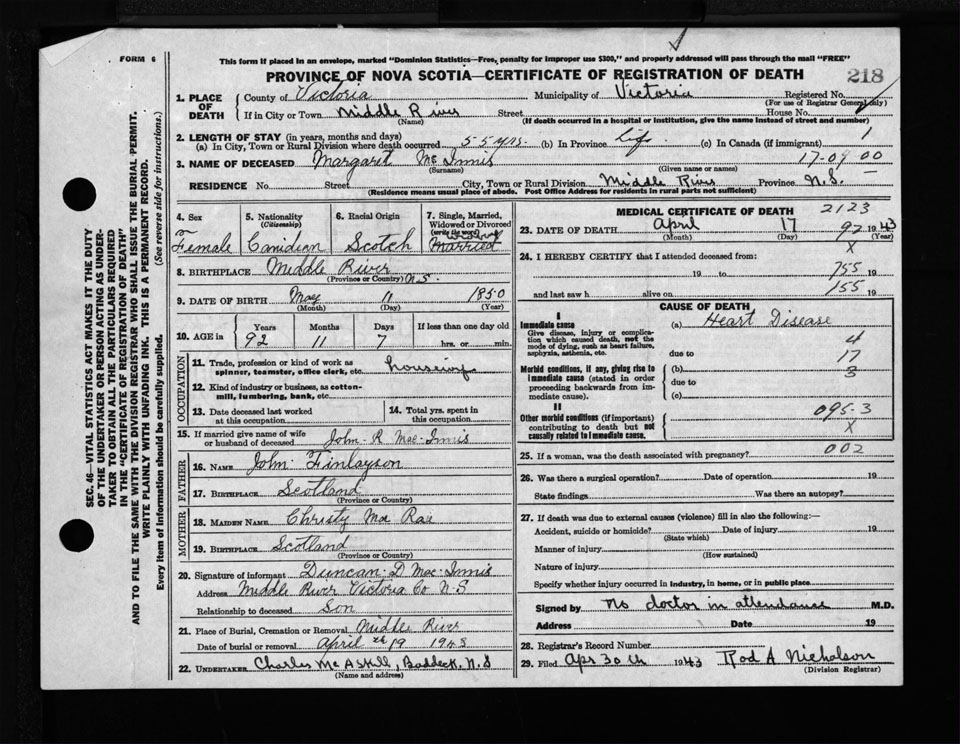 FORM 6
This form if placed in an envelope, marked "Dominion Statistics—Free, penalty for improper use $300," and properly addressed will pass through the mail "FREE"
PROVINCE OF NOVA SCOTIA—CERTIFICATE OF REGISTRATION OF DEATH
218
1. PLACE OF DEATH
County of Victoria Municipality of Victoria Registered No.
(For use of Registrar General only)
If in City or Town Middle River Street House No.
(Name) (If death occurred in a hospital or institution, give the name instead of street and number)
2. LENGTH OF STAY (in years, months and days)
(a) In City, Town or Rural Division where death occurred 55 yrs. (b) In Province Life. (c) In Canada (if immigrant) 1
3. NAME OF DECEASED Margaret McInnis 17-09 00
(Surname) (Given name or names)
RESIDENCE No. Street City, Town or Rural Division Middle River Province N.S.
(Residence means usual place of abode. Post Office Address for residents in rural parts not sufficient)
4. Sex
Female
5. Nationality
(Citizenship)
Canidien
6. Racial Origin
Scotch
7. Single, Married, Widowed or Divorced
(write the word)
Married
8. BIRTHPLACE Middle River N.S.
(Province or Country)
9. DATE OF BIRTH May 11 1850
(Month) (Day) (Year)
10. AGE in Years Months Days If less than one day old
92 11 7 hrs. or min.
OCCUPATION
11. Trade, profession or kind of work as spinner, teamster, office clerk, etc.
12. Kind of industry or business, as cotton-mill, lumbering, bank, etc.
13. Date deceased last worked at this occupation
14. Total yrs. spent in this occupation
15. If married give name of wife or husband of deceased John R Mac Innis
FATHER
16. NAME John Finlayson
17. BIRTHPLACE Scotland
(Province or Country)
MOTHER
18. MAIDEN NAME Christy Mac Rae
19. BIRTHPLACE Scotland
(Province or Country)
20. Signature of informant Duncan D Mac Innis
Address Middle River Victoria Co N.S
Relationship to deceased Son
21. Place of Burial, Cremation or Removal Middle River
Date of burial or removal April th 19 1943
22. UNDERTAKER Charles McAskill, Baddeck, N.S
(Name and address)
MEDICAL CERTIFICATE OF DEATH 2123
23. DATE OF DEATH April 17 92 1943
(Month) (Day) (Year)
X
24. I HEREBY CERTIFY that I attended deceased from:
19 to 755 19
and last saw h alive on 155 19
CAUSE OF DEATH
I
Immediate cause
Give disease, injury or complication which caused death, not the mode of dying, such as heart failure, asphyxia, asthenia, etc.
(a) Heart Disease
4
due to 17
Morbid conditions, if any, giving rise to immediate cause (stated in order proceeding backwards from immediate cause).
(b) 3
due to
(c)
II
Other morbid conditions (if important) contributing to death but not causally related to immediate cause.
095-3
X
25. If a woman, was the death associated with pregnancy? 002
26. Was there a surgical operation? Date of operation 19
State findings Was there an autopsy?
27. If death was due to external causes (violence) fill in also the following:—
Accident, suicide or homicide? Date of injury 19
(State which)
Manner of injury
(How sustained)
Nature of injury
Specify whether injury occurred in industry, in home, or in public place
Signed by No doctor in attendance M.D.
Address Date 19
28. Registrar's Record Number
29. Filed Apr 30 th 1943 Rod A Nicholson
(Division Registrar)
SEC. 46—VITAL STATISTICS ACT MAKES IT THE DUTY
OF THE UNDERTAKER OR PERSON ACTING AS UNDER-
TAKER TO OBTAIN ALL THE PARTICULARS REQUIRED
IN THE "CERTIFICATE OF REGISTRATION OF DEATH"
AND TO FILE THE SAME WITH THE DIVISION REGISTRAR WHO SHALL ISSUE THE BURIAL PERMIT.
WRITE PLAINLY WITH UNFADING INK. THIS IS A PERMANENT RECORD.
Every item of information should be carefully supplied. (See reverse side for instructions.)